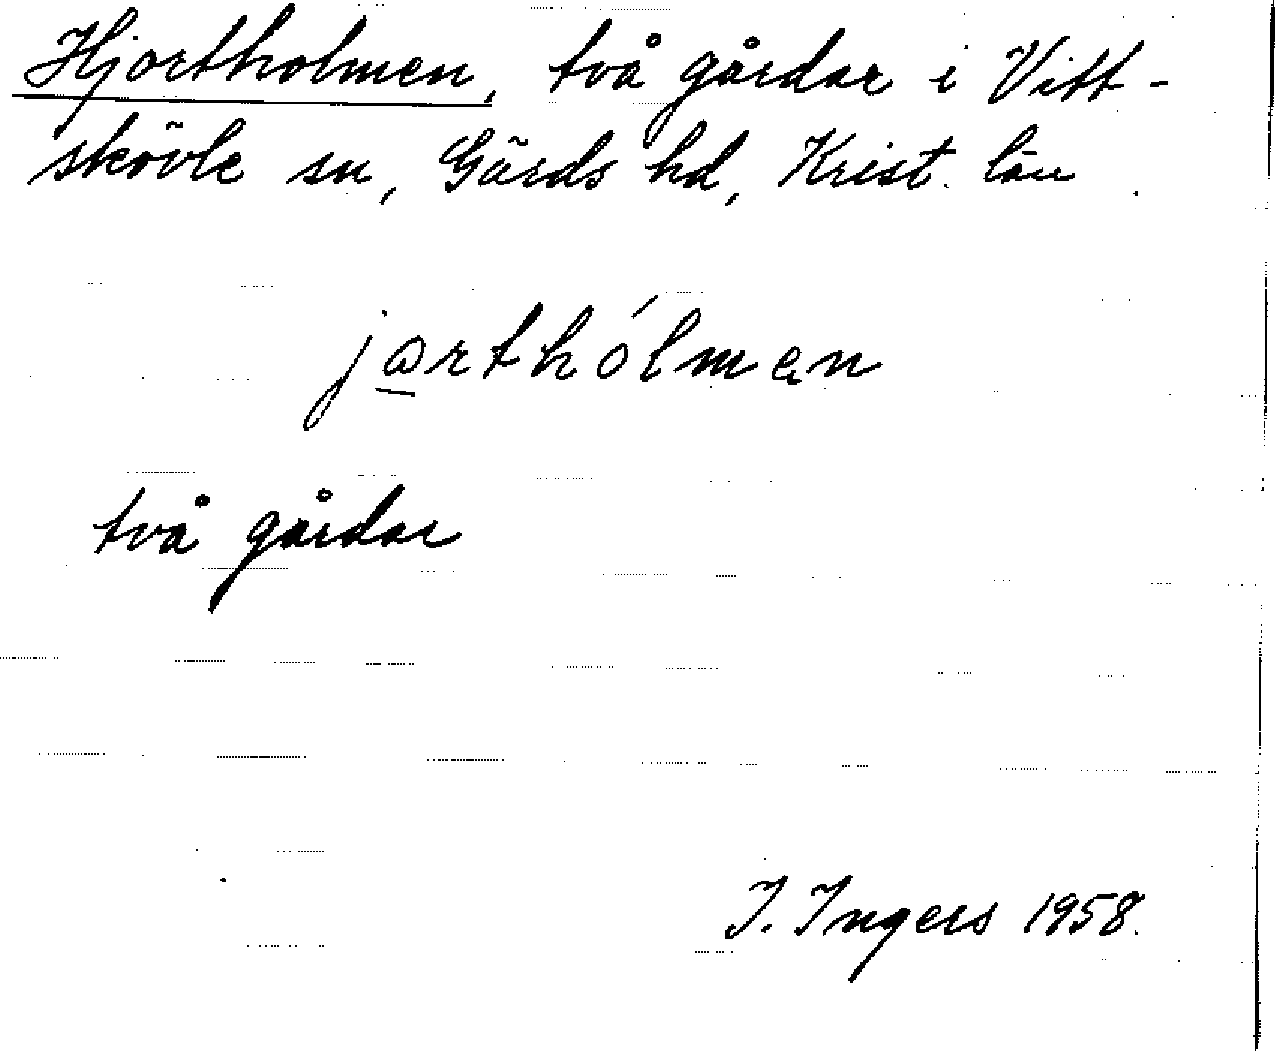 Hjortholmen, två gårdar i Vitt-
skövle sn, Gärds hd, Krist. län.
jarthólmen
två gårdar
I. Ingers 1958.